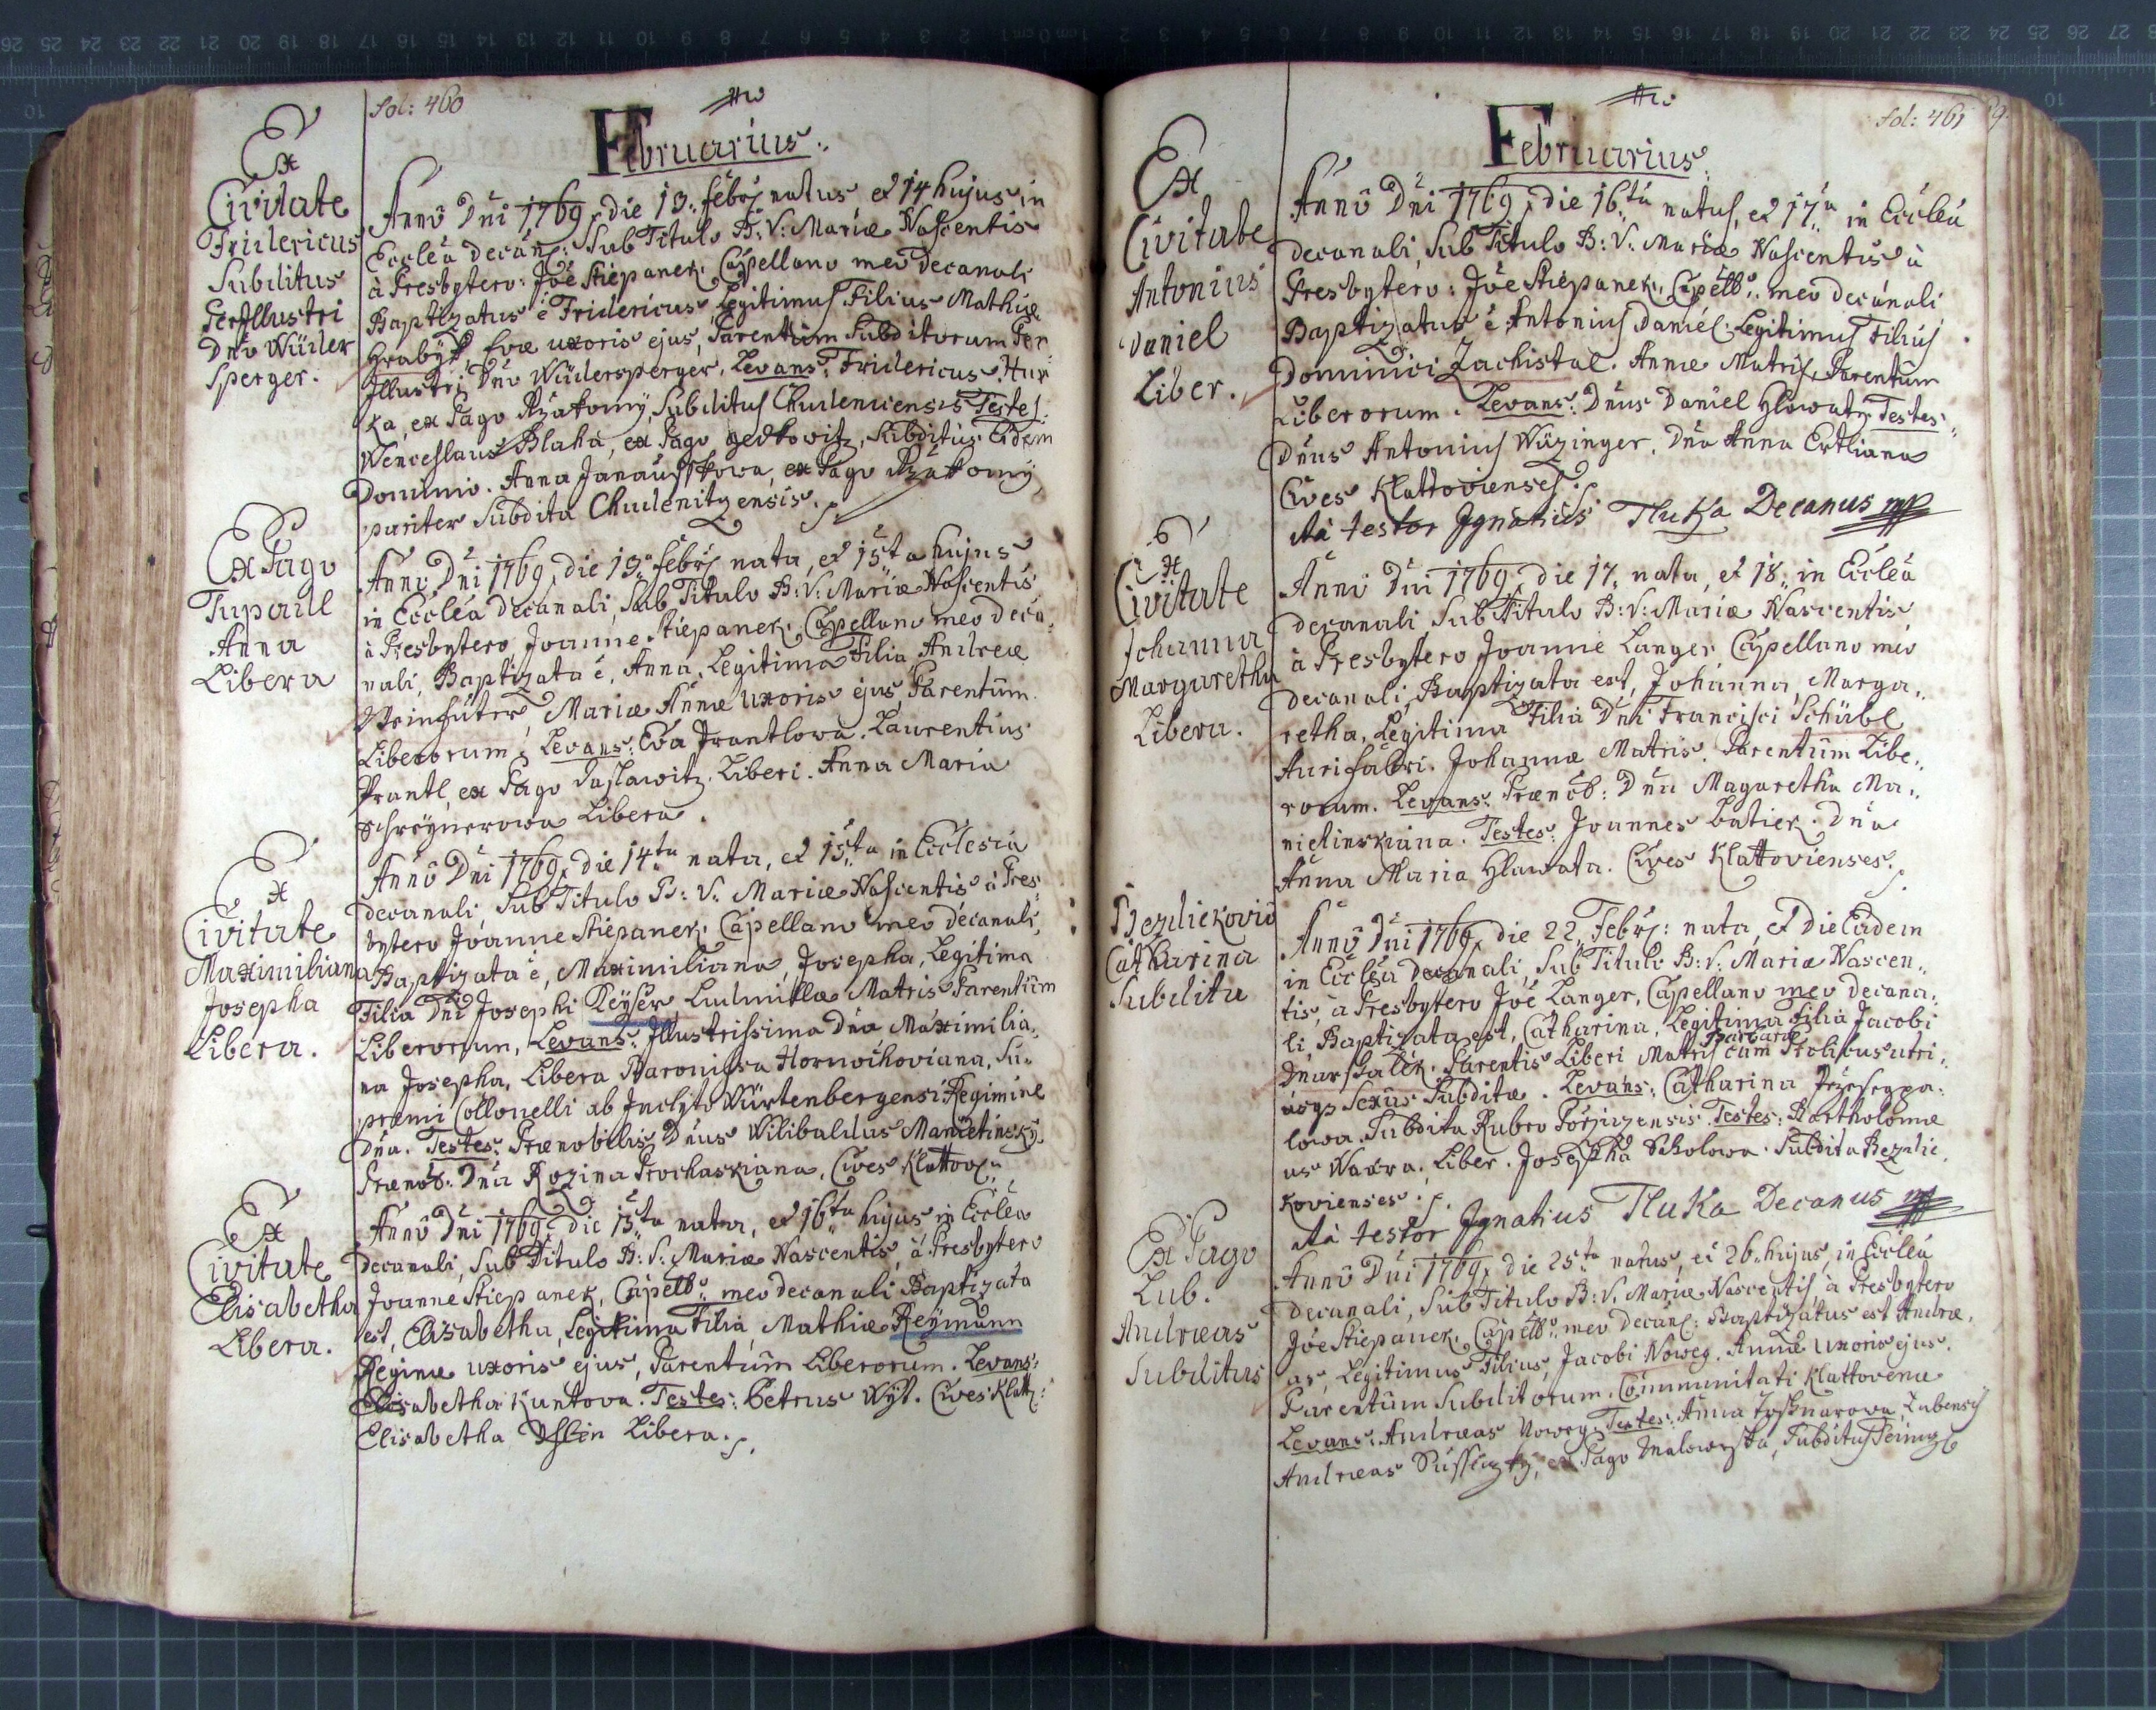 fol: 460
Februarius.
Ex
Civitate
Fridericus
Subditus
Perillustri
Dno Würder
Sperger.
Anno Dni 1769, die 13. febrj natus et 14 hujus in
Eccleā decan: Sub Titulo B: V: Mariæ Nascentis
à Presbytero: Joē Stiepanek, Capellano meo decanali
Baptizatus ē Fridericus Legitimus Filius Mathiæ
Evæ uxoris ejus, Parentum Subditorum Per
Illustri Dno Würdersperger, Levans: Fridericus Hur
ka, ex Pago Rzakomy, Subditus Chudenicensis Testes:
Wenceslaus Blaha, ex Pago Subditus Eidem
Dominio. Anna ex Pago Rzakomy
pariter Subdita Chudenitzensis.
Ex Pago
Tupadl
Anna
Libera
Anno Dni 1769, die 13. febrj nata, et 15ta hujus
in Eccleā decanali, Sub Titulo B: V: Mariæ Nascentis
à Presbytero Joanne Stiepanek, Capellano meo deca
nali, Baptizata ē, Anna, Legitima Filia, Andreæ
Mariæ Annæ uxoris ejus, Parentum
Liberorum, Levans: Eva Laurentius
Prantl, ex Pago Liberi. Anna Maria
Libera.
Ex
Civitate
Maximiliana
Josepha
Libera.
Anno Dni 1769, die 14ta nata, et 15ta in Ecclesia
decanali, Sub Titulo B: V: Mariæ Nascentis à Pres
bytero Joanne Stiepanek, Capellano meo decanali,
Baptizata ē, Maximiliana, Josepha, Legitima
Filia Dni Josephi Keyser Ludmillæ Matris Parentum
Liberorum, Levans: Illustrissima Dna Maximilia,,
na Josepha, Libera Baronissa Hornvihoviana, Su,,
premi Collonelli ab Inclyto Würtenbergensi Regimine
Dna. Testes: Prænobilis Dnus Wilibaldus Manietinsky.
Prænob: Dna Rozina Prochaskiana, Cives Klattov:
Ex
Civitate
Elisabetha
Libera.
Anno Dni 1769, die 15ta nata, et 16ta hujus in Eccleā
decanali, Sub Titulo B: V: Mariæ Nascentis, à Presbytero
Joanne Stiepanek, Capello: meo decanali Baptizata
est, Elisabetha, Legitima Filia, Mathiæ Reymann
Reginæ uxoris ejus, Parentum Liberorum. Levans:
Elisabetha Kuntova. Testes: Petrus Wyt. Cives Klatt:
Elisabetha Libera.
fol: 461
Februarius.
Ex
Civitate
Antonius
Daniel
Liber.
Anno Dni 1769, die 16ta natus, et 17a in Eccleā
decanali, Sub Titulo B: V: Mariæ Nascentis à
Presbytero: Joē Stiepanek, Capello: meo decanali
Baptizatus ē Antonius Daniel Legitimus Filius
Dominici Zachistal. Annæ Matris, Parentum
Liberorum. Levans: Dnus Daniel Hlowaty. Testes:
Dnus Antonius Wüzinger. Dna Anna Ertliana
Cives Klattovienses.
Ità testor Ignatius Tluka Decanus mp
Ex
Civitate
Johanna
Margaretha
Libera.
Anno Dni 1769, die 17. nata, et 18. in Eccleā
decanali, Sub Titulo B: V: Mariæ Nascentis,
à Presbytero Joanne Langer Capellano meo
decanali, Baptizata est, Johanna, Marga,,
retha, Legitima Filia Dni Francisci Schübl
Aurifabri. Johannæ Matris. Parentum Libe,,
rorum. Levans: Prænob: Dna Magaretha Ma,,
nietinskiana. Testes: Joannes Batiek. Dna
Anna Maria Hlawata. Cives Klattovienses.
Bezdiekovio
Catharina
Subdita
Anno Dni 1769, die 22. Febrj: nata, et Die Eadem
in Eccleā decanali, Sub Titulo B: V: Mariæ Nascen,,
tis, à Presbytero Joē Langer, Capellano meo decana,,
li, Baptizata est, Catharina, Legitima Filia Jacobi
Barbaræ
Parentis Liberi Matris cum Prolibus utri,,
usq, Sexus Subditæ. Levans: Catharina
lowa. Subdita Rubro Porziczensis. Testes: Bartholomæ
us Waura. Liber. Josepha Sokolowa. Subdita Bezdie,
kovienses.
Ità testor Ignatius Tluka Decanus mp
Ex Pago
Lub.
Andreas
Subditus
Anno Dni 1769, die 25ta natus, et 26. hujus, in Eccleā
decanali, Sub Titulo B: V: Mariæ Nascentis, à Presbytero
Joē Stiepanek, Capello: meo decan: Baptizatus est Andræ,
as, Legitimus Filius, Jacobi Noweg. Annæ uxoris ejus.
Parentum Subditorum, Communitati Klattovenæ
Levans: Andreas Noweg. Testes: Anna Lubensis
Andreas ex Pago Malowyska, Subditus